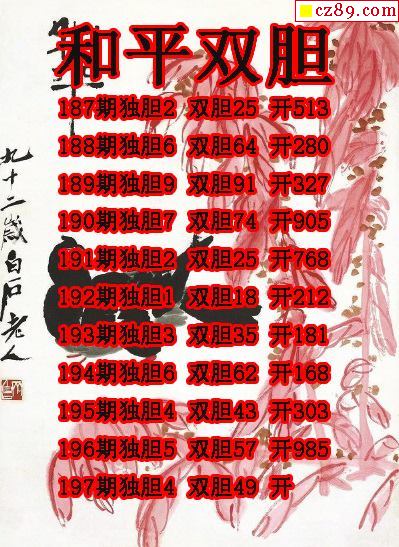 cz89.com
和平双胆
187期独胆2 双胆25 开513
188期独胆6 双胆64 开280
189期独胆9 双胆91 开327
190期独胆7 双胆74 开905
191期独胆2 双胆25 开768
192期独胆1 双胆18 开212
193期独胆3 双胆35 开181
194期独胆6 双胆62 开168
195期独胆4 双胆43 开303
196期独胆5 双胆57 开985
197期独胆4 双胆49 开
九十二岁白石老人